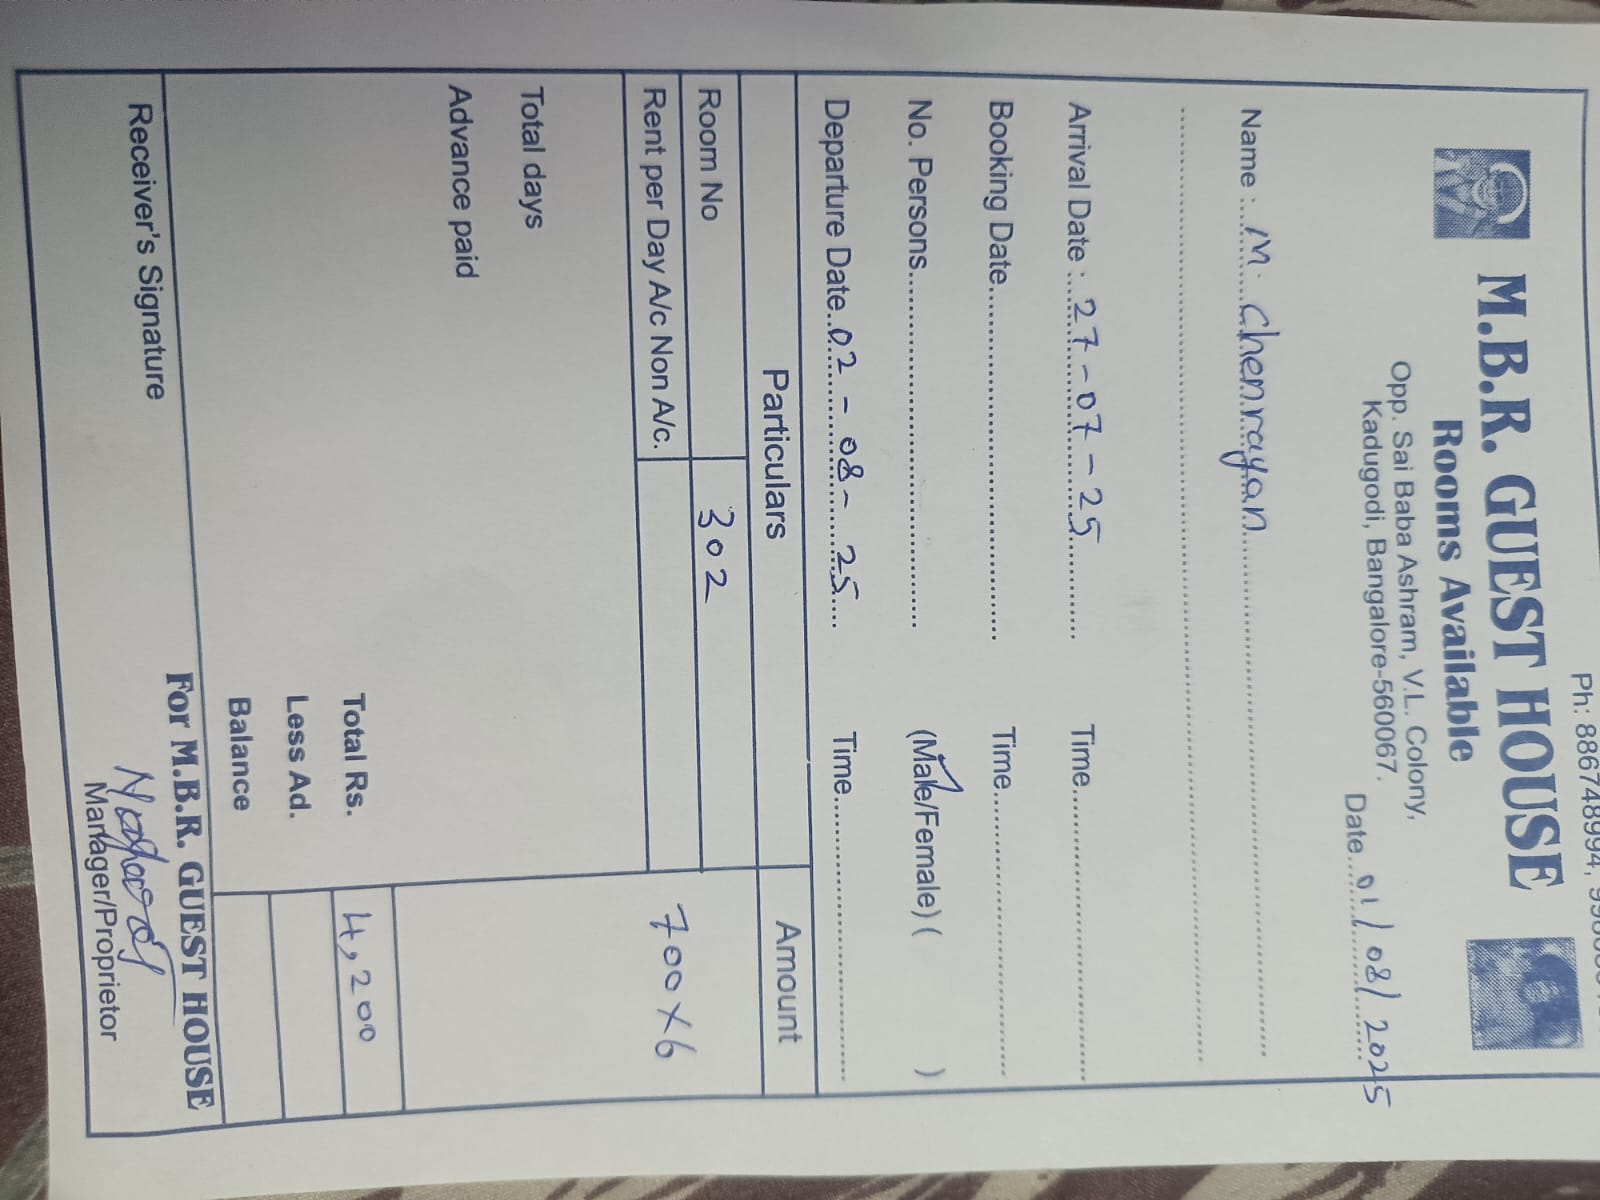 Ph: 886748994,
M.B.R. GUEST HOUSE
Rooms Available
Opp. Sai Baba Ashram, V.L. Colony,
Kadugodi, Bangalore-560067.
Date...01/08/2025
Name :...M. Chenrayan
Arrival Date : 27-07-25 Time
Booking Date Time
No. Persons (Male/Female) ( )
Departure Date 02-08-25 Time
Particulars Amount
Room No 302
Rent per Day A/c Non A/c. 700 x 6
Total days
Advance paid
Total Rs. 4,200
Less Ad.
Balance
For M.B.R. GUEST HOUSE
Receiver's Signature Manager/Proprietor